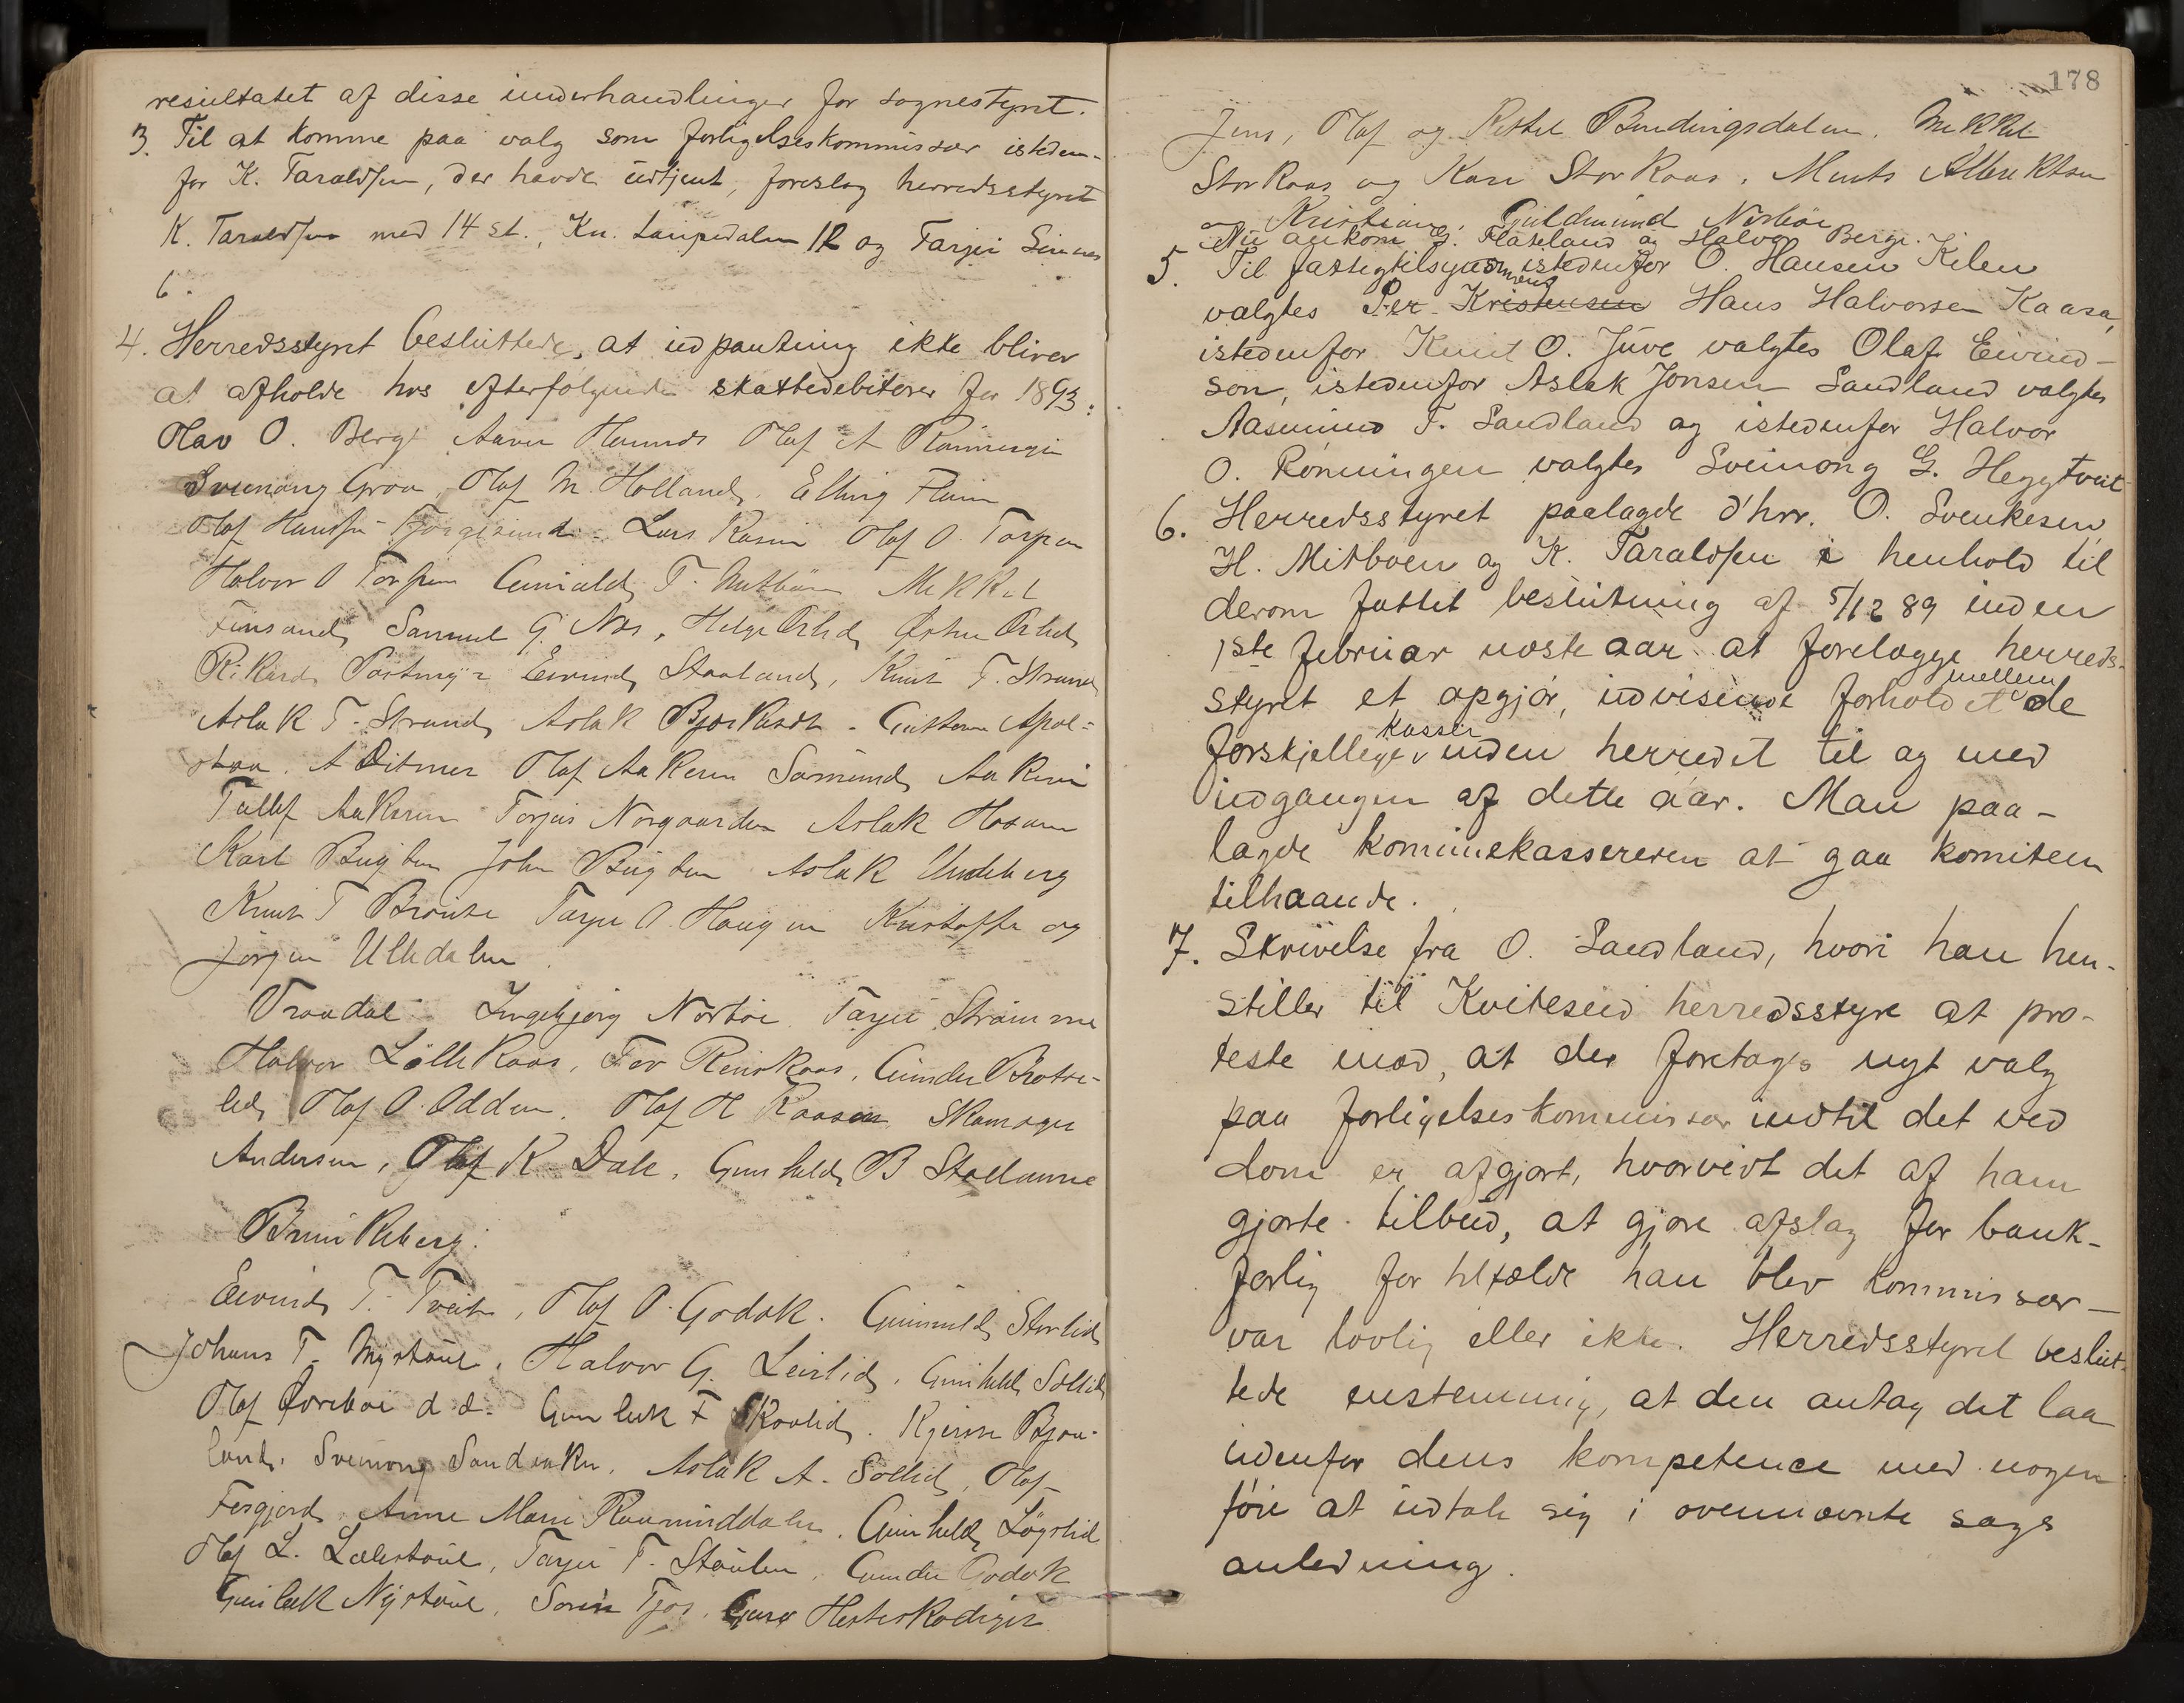 resultatet af disse underhandlinger for sognestyret.
3. Til at komme paa valg som forligelseskommissær isteden-
for K. Taraldsen, der havde udtjent, foreslog herredsstyret
K. Taraldsen med 14 st., Kn. Lønpedalen 12 og Tarjei Sinnes
6.
4. Herredsstyret besluttede, at udpantning ikke bliver
at afholde hos efterfølgende skattedebitorer for 1893:
Olav O. Berge Aanon Olaf A Rønningen
Sveinong Groa, Olaf M. Holland, Elling
Olaf Hansen Lars Olaf O. Torpen
Halvor O Torpen Gunuld T. Mikkel
Samuel G. Næs, Helge
Rikard Postmyr Eivind Staaland, Knut T. Strand
Aslak T. Strand, Aslak Gustav Apal-
A Ditmer Olaf Aakeren Sømund Aakeren
Tallef Aakeren Torjus Norgaarden Aslak
Karl Bugten John Bugten Aslak Undeberg
Knut T Tarjei O. Haugen Kristoffer og
Jørgen Ulledalen.
Vraadal: Ingebjørg Nørbøe. Tarjei Strømme
Halvor LilleKaas, Gunder
Olaf O. Odden. Olaf H Kaasen Skomager
Andersen, Olaf K. Dale, Gunhild B
Brunkeberg:
Eivind T. Tveit, Olaf O. Godøk. Gunuld Storlid
Johans T. Nystøul, Halvor G. Leirlid, Gunhild Sollid
Olaf d d. Gunleik F Skovlid. Bjaa-
land, Sveinong Sandaaker, Aslak A. Sollid, Olaf
Anne Marie Raamunddalen. Gunhild Løgslid
Olaf L. Tarjei T. Støulen, Gunder Godøk
Gunleik Nystøul,
178
Jens, Olaf og Kittel Bindingsdalen. Mikkel
StorKaas og Kari StorKaas, Albrektsen
og Kristian, Guldmund Nørbøe
Nu ankom G. Flateland og Halvor Berge.
5. Til fattigtilsynsmænd istedenfor O. Hansen Kilen
valgtes Per Kristensen Hans Halvorsen Kaasa,
istedenfor Knut O. Juve valgtes Olaf Eivind-
son, istedenfor Aslak Jonsen Sandland valgtes
Aasmund T. Sandland og istedenfor Halvor
O. Rønningen valgtes Sveinong G. Heggtveit
6. Herredsstyret paalagde d'hrr. O. Svenkesen,
H. Mitbøen og K. Taraldsen i henhold til
derom fattet beslutning af 5/12 89 inden
1ste februar næste aar at forelægge herreds-
styret et opgjør, udvisende forholdet mellem de
forskjellige kasser inden herredet til og med
udgangen af dette aar. Man paa-
lagde kommunekassereren at gaa komiteen
tilhaande.
7. Skrivelse fra O. Sandland, hvori han hen-
stiller til Kviteseid herredsstyre at pro-
teste mod, at der foretages nyt valg
paa forligelseskommissær indtil det ved
dom er afgjort, hvorvidt det af ham
gjorte tilbud, at gjøre afslag for bank-
forlig for tilfælde han blev kommissær—
var lovlig eller ikke. Herredsstyret beslut-
tede enstemmig, at den antog det laa
udenfor dens kompetence med nogen
føie at udtale sig i ovennævnte sags
anledning.